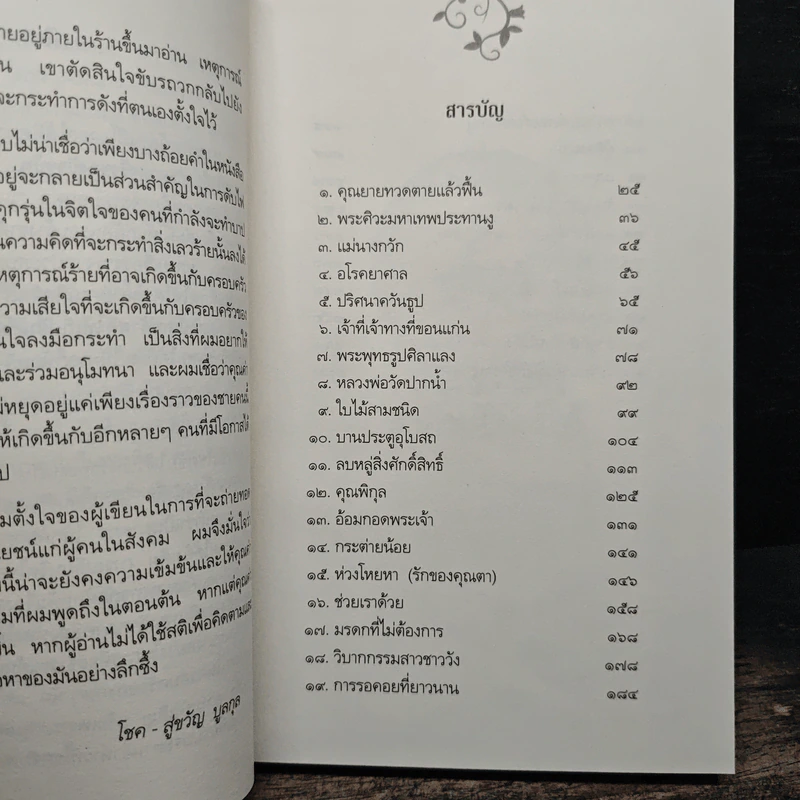 ายอยู่ภายในร้านขึ้นมาอ่าน เหตุการณ์
น เขาตัดสินใจขับรถวกกลับไปยัง
จะกระทำการดังที่ตนเองตั้งใจไว้
บไม่น่าเชื่อว่าเพียงบางถ้อยคำในหนังสือ
อยู่จะกลายเป็นส่วนสำคัญในการดับไฟ
คุกรุ่นในจิตใจของคนที่กำลังจะทำบาป
นความคิดที่จะกระทำสิ่งเลวร้ายนั้นลงได้
หตุการณ์ร้ายที่อาจเกิดขึ้นกับครอบครัว
วามเสียใจที่จะเกิดขึ้นกับครอบครัวของ
นใจลงมือกระทำ เป็นสิ่งที่ผมอยากให้
และร่วมอนุโมทนา และผมเชื่อว่าคุณค่า
ม่หยุดอยู่แค่เพียงเรื่องราวของชายคนนี้
ห้เกิดขึ้นกับอีกหลายๆ คนที่มีโอกาสได้
ป
มตั้งใจของผู้เขียนในการที่จะถ่ายทอด
ยชน์แก่ผู้คนในสังคม ผมจึงมั่นใจว่า
นี้น่าจะยังคงความเข้มข้นและให้คุณค่า
มที่ผมพูดถึงในตอนต้น หากแต่คุณค่า
ั้น หากผู้อ่านไม่ได้ใช้สติเพื่อคิดตามและ
หาของมันอย่างลึกซึ้ง
โชค - สู่ขวัญ บูลกุล
สารบัญ
๑. คุณยายทวดตายแล้วฟื้น ๒๕
๒. พระศิวะมหาเทพประทานงู ๓๖
๓. แม่นางกวัก ๔๕
๔. อโรคยาศาล ๕๖
๕. ปริศนาควันธูป ๖๕
๖. เจ้าที่เจ้าทางที่ขอนแก่น ๗๑
๗. พระพุทธรูปศิลาแลง ๗๘
๘. หลวงพ่อวัดปากน้ำ ๙๒
๙. ใบไม้สามชนิด ๙๙
๑๐. บานประตูอุโบสถ ๑๐๔
๑๑. ลบหลู่สิ่งศักดิ์สิทธิ์ ๑๑๓
๑๒. คุณพิกุล ๑๒๕
๑๓. อ้อมกอดพระเจ้า ๑๓๑
๑๔. กระต่ายน้อย ๑๔๑
๑๕. ห่วงโหยหา (รักของคุณตา) ๑๔๖
๑๖. ช่วยเราด้วย ๑๕๘
๑๗. มรดกที่ไม่ต้องการ ๑๖๘
๑๘. วิบากกรรมสาวชาววัง ๑๗๘
๑๙. การรอคอยที่ยาวนาน ๑๘๔